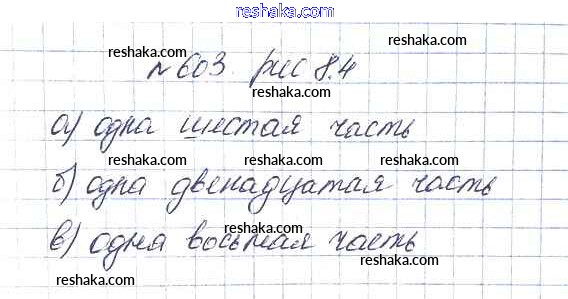 reshaka.com
reshaka.com reshaka.com
№603. рис 8.4
reshaka.com
reshaka.com reshaka.com
а) одна шестая часть
reshaka.com reshaka.com reshaka.com
б) одна двенадцатая часть
reshaka.com reshaka.com
в) одна восьмая часть
reshaka.com reshaka.com